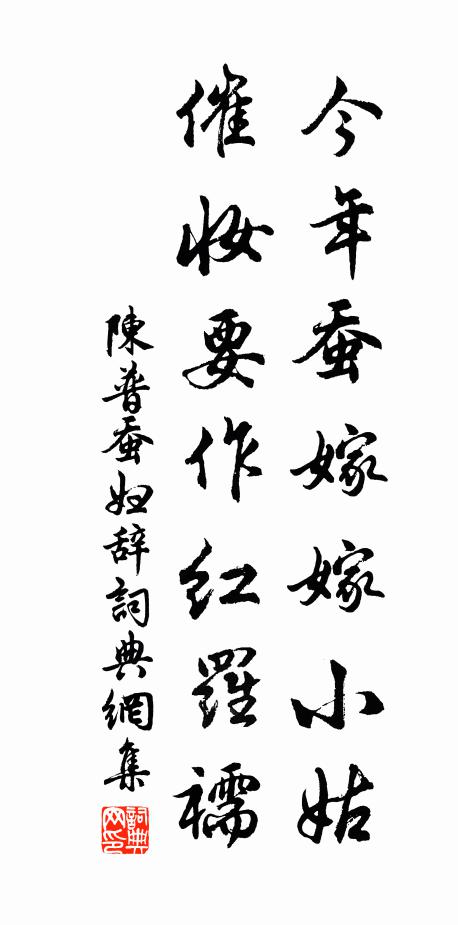 今年蚕嫁嫁小姑
催妆要作红羅襦
陳普蚕妇辞詞典網集
詞典网印